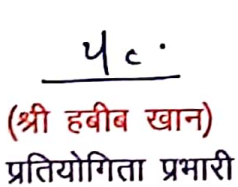 (श्री हबीब खान)
प्रतियोगिता प्रभारी